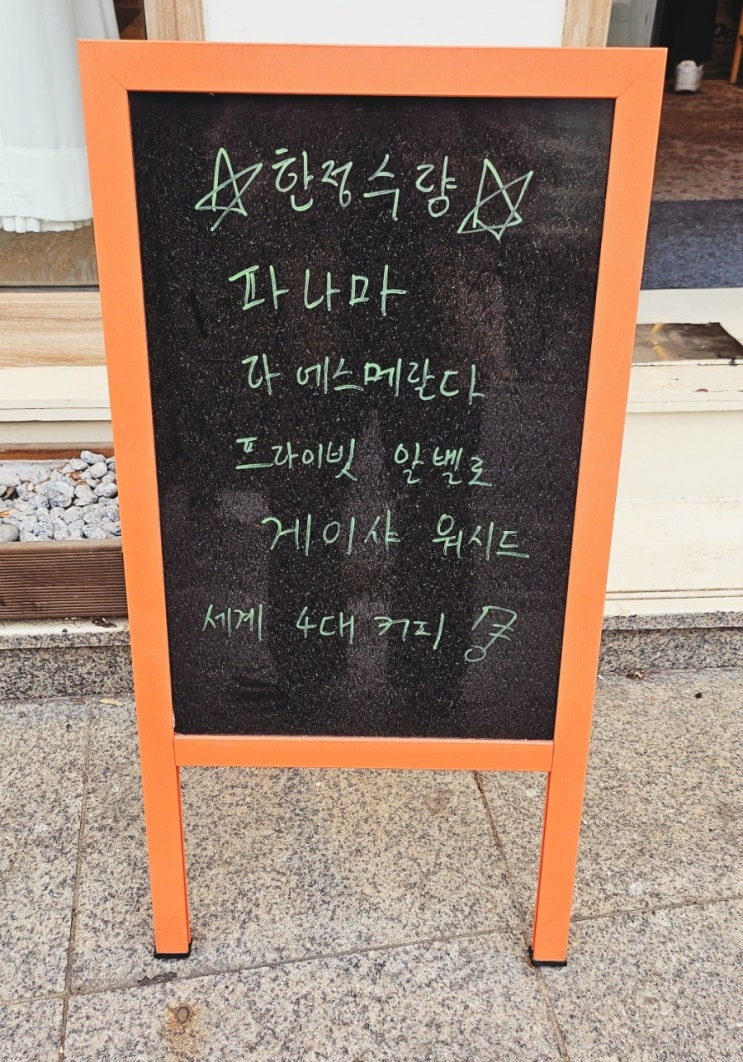 ☆한정수량☆
파나마
라 에스메랄다
프라이빗 알벨로
게이샤 워시드
세계 4대 커피